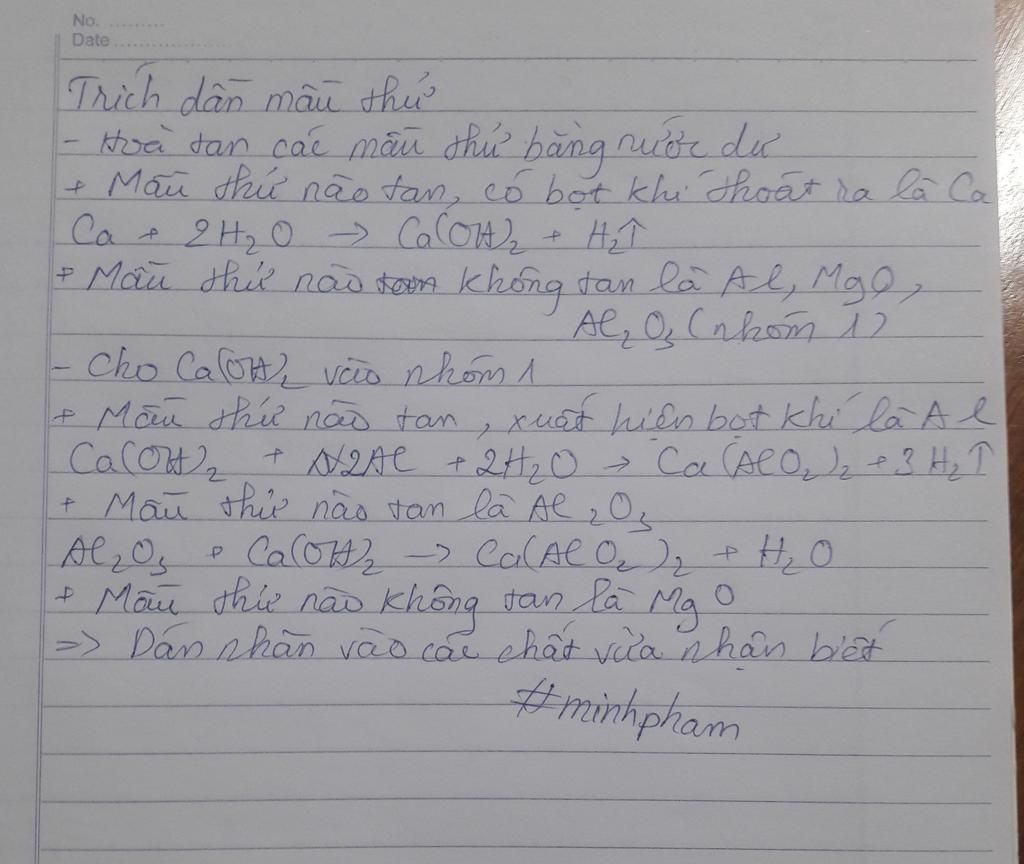 No. ..........
Date ....................
Trích dẫn mẫu thử
- Hoà tan các mẫu thử bằng nước dư
+ Mẫu thử nào tan, có bọt khí thoát ra là Ca
Ca + 2H₂O → Ca(OH)₂ + H₂↑
+ Mẫu thử nào không tan là Al, MgO,
Al₂O₃ (nhóm 1)
- Cho Ca(OH)₂ vào nhóm 1
+ Mẫu thử nào tan, xuất hiện bọt khí là Al
Ca(OH)₂ + 2Al + 2H₂O → Ca(AlO₂)₂ + 3H₂↑
+ Mẫu thử nào tan là Al₂O₃
Al₂O₃ + Ca(OH)₂ → Ca(AlO₂)₂ + H₂O
+ Mẫu thử nào không tan là MgO
=> Dán nhãn vào các chất vừa nhận biết
#minhpham